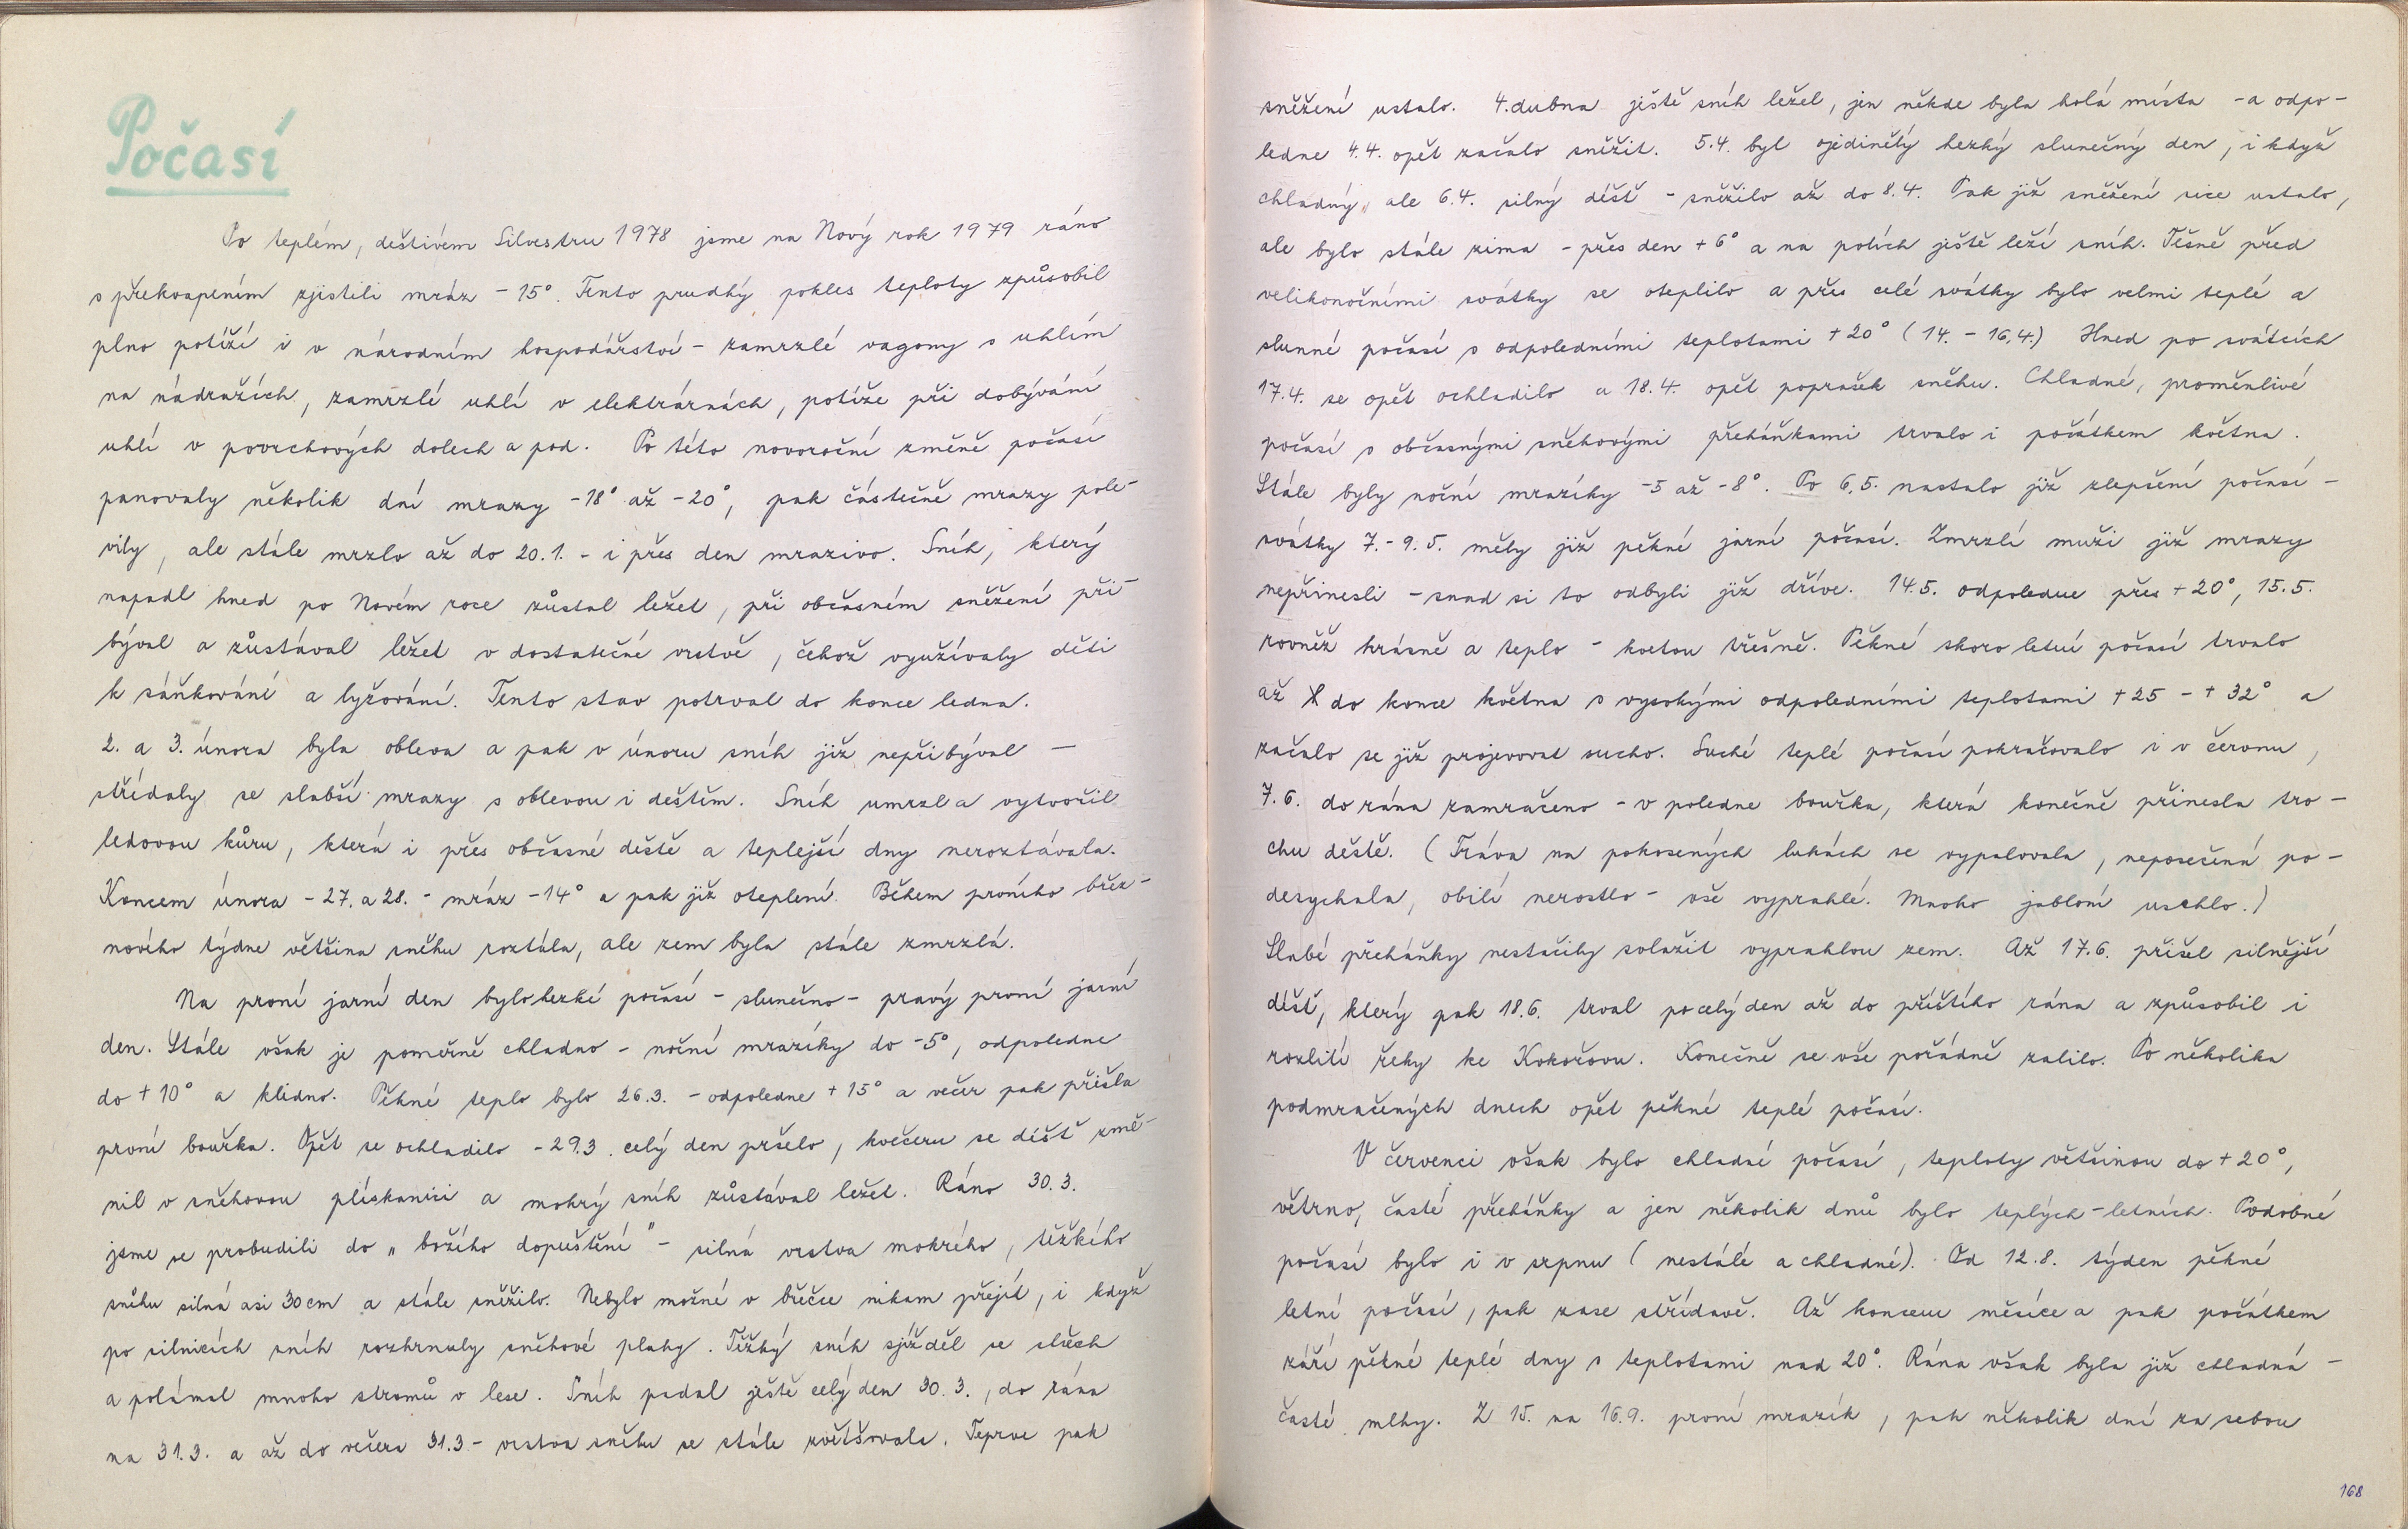 Počasí
Po teplém, deštivém Silvestru 1978 jsme na Nový rok 1979 ráno
s překvapením zjistili mráz -15°. Tento prudký pokles teploty způsobil
plno potíží i v národním hospodářství - zamrzlé vagony s uhlím
na nádražích, zamrzlé uhlí v elektrárnách, potíže při dobývání
uhlí v povrchových dolech a pod. Po této novoroční změně počasí
panovaly několik dní mrazy -18° až -20°, pak částečně mrazy pole-
vily, ale stále mrzlo až do 20.1. - i přes den mrazivo. Sníh, který
napadl hned po Novém roce zůstal ležet, při občasném sněžení při-
býval a zůstával ležet v dostatečné vrstvě, čehož využívaly děti
k sáňkování a lyžování. Tento stav potrval do konce ledna.
2. a 3. února byla obleva a pak v únoru sníh již nepřibýval -
střídaly se slabší mrazy s oblevou i deštěm. Sníh umrzl a vytvořil
ledovou kůru, která i přes občasné deště a teplejší dny neroztávala.
Koncem února - 27. a 28. - mráz -14° a pak již oteplení. Během prvního břez-
nového týdne většina sněhu roztála, ale zem byla stále zmrzlá.
Na první jarní den bylo hezké počasí - slunečno - pravý první jarní
den. Stále však je poměrně chladno - noční mrazíky do -5°, odpoledne
do +10° a klidno. Pěkné teplo bylo 26.3. - odpoledne +15° a večer pak přišla
první bouřka. Opět se ochladilo - 29.3. celý den pršelo, kvečeru se déšť změ-
nil v sněhovou plískanici a mokrý sníh zůstával ležet. Ráno 30.3.
jsme se probudili do „božího dopuštění" - silná vrstva mokrého, těžkého
sněhu silná asi 30cm a stále sněžilo. Nebylo možné v břečce nikam přejít, i když
po silnicích sníh rozhrnuly sněhové pluhy. Těžký sníh sjížděl se střech
a polámal mnoho stromů v lese. Sníh padal ještě celý den 30.3., do rána
na 31.3. a až do večera 31.3 - vrstva sněhu se stále zvětšovala. Teprve pak
sněžení ustalo. 4. dubna ještě sníh ležel, jen někde byla holá místa - a odpo-
ledne 4.4. opět začalo sněžit. 5.4. byl ojedinělý hezký slunečný den, i když
chladný, ale 6.4. silný déšť - sněžilo až do 8.4. Pak již sněžení sice ustalo,
ale bylo stále zima - přes den +6° a na polích ještě leží sníh. Těsně před
velikonočními svátky se oteplilo a přes celé svátky bylo velmi teplé a
slunné počasí s odpoledními teplotami +20° (14. - 16.4.) Hned po svátcích
17.4. se opět ochladilo a 18.4. opět poprašek sněhu. Chladné, proměnlivé
počasí s občasnými sněhovými přeháňkami trvalo i počátkem května.
Stále byly noční mrazíky -5 až -8°. Po 6.5. nastalo již zlepšení počasí -
svátky 7.- 9.5. měly již pěkné jarní počasí. Zmrzlí muži již mrazy
nepřinesli - snad si to odbyli již dříve. 14.5. odpoledne přes +20°, 15.5.
rovněž krásně a teplo - kvetou třešně. Pěkné skoro letní počasí trvalo
až do konce května s vysokými odpoledními teplotami +25 - +32° a
začalo se již projevovat sucho. Suché teplé počasí pokračovalo i v červnu,
7.6. do rána zamračeno - v poledne bouřka, která konečně přinesla tro-
chu deště. (Tráva na pokosených lukách se vypalovala, neposečená po-
desychala, obilí nerostlo - vše vyprahlé. Mnoho jabloní uschlo.)
Slabé přeháňky nestačily svlažit vyprahlou zem. Až 17.6. přišel silnější
déšť, který pak 18.6. trval po celý den až do příštího rána a způsobil i
rozlití řeky ke Kokořovu. Konečně se vše pořádně zalilo. Po několika
podmračených dnech opět pěkné teplé počasí.
V červenci však bylo chladné počasí, teploty většinou do +20°,
větrno, časté přeháňky a jen několik dnů bylo teplých - letních. Podobné
počasí bylo i v srpnu (nestálé a chladné). Od 12.8. týden pěkné
letní počasí, pak zase střídavě. Až koncem měsíce a pak počátkem
září pěkné teplé dny s teplotami nad 20°. Rána však byla již chladná -
časté mlhy. Z 15. na 16.9. první mrazík, pak několik dní za sebou
168